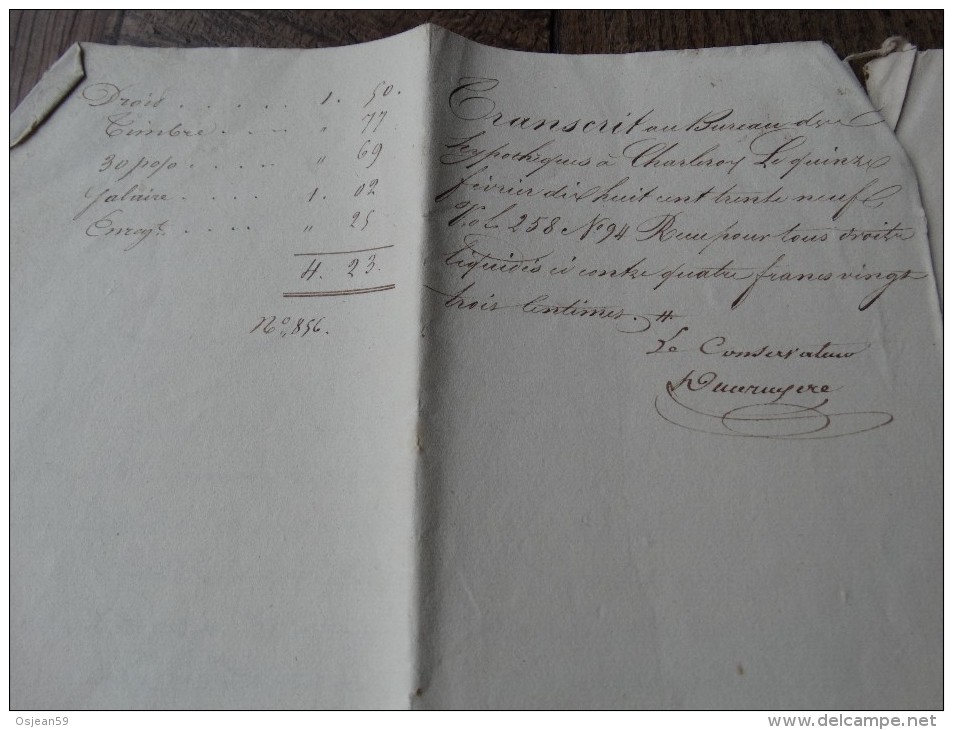 Droit . . . . . . 1. 50.
Timbre . . . . " 77
30 p% . . . . " 69
Salaire . . . . 1. 02
Enregt. . . . . " 25
4. 23.
No. 856.
Transcrit au Bureau des
hypothèques à Charleroy Le quinze
février dix huit cent trente neuf
Vol. 258 No 94 Reçu pour tous droits
liquidés ci contre quatre francs vingt
trois Centimes.
Le Conservateur
Osjean59
www.delcampe.net